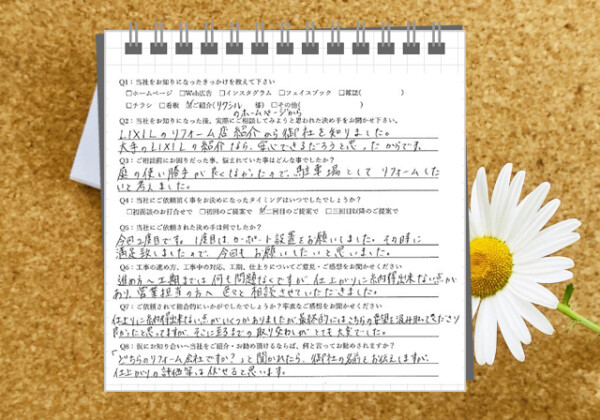 Q1：当社をお知りになったきっかけを教えて下さい
□ホームページ □Web広告 □インスタグラム □フェイスブック □雑誌（　　　）
□チラシ □看板 ☑ご紹介（リクシル 様）□その他（　　　）
のホームページから
Q2：当社をお知りになった後、実際にご相談してみようと思われた決め手をお聞かせ下さい。
LIXILのリフォーム店紹介から御社を知りました。
大手のLIXILの紹介なら、安心できるだろうと思ったからです。
Q3：ご相談前にお困りだった事、悩まれていた事はどんな事でしたか？
庭の使い勝手が良くなかったので、駐車場として リフォームした
いと考えました。
Q4：当社にご依頼頂く事をお決めになったタイミングはいつでしたでしょうか？
□初面談のお打合せで □初回のご提案で ☑二回目のご提案で □三回目以降のご提案で
Q5：当社にご依頼された決め手は何でしたか？
今回2度目です。1度目はカーポート設置をお願いしました。その時に
満足致しましたので、今回もお願いしたいと思いました。
Q6：工事の進め方、工事中の対応、工期、仕上りについてご意見・ご感想をお聞かせください
進め方や工期までは何も問題なくですが 仕上がりに納得出来ない点が
あり、営業担当の方へ 色々と相談させていただきました。
Q7：ご依頼されて総合的にいかがでしたでしょうか？率直なご感想をお聞かせください
仕上りに納得出来ない点がいくつかありましたが、最終的にはこちらの要望を汲み取って下さり
良かったと思ってますが、そこに至るまでの取り交わしが とても大変でした。
Q8：仮にお知り合いへ当社をご紹介・お勧め頂けるならば、何と言ってお勧めされますか？
「どちらのリフォーム会社ですか？」と聞かれたら、御社の名前をお伝えしますが、
仕上がりの評価等は伏せると思います。